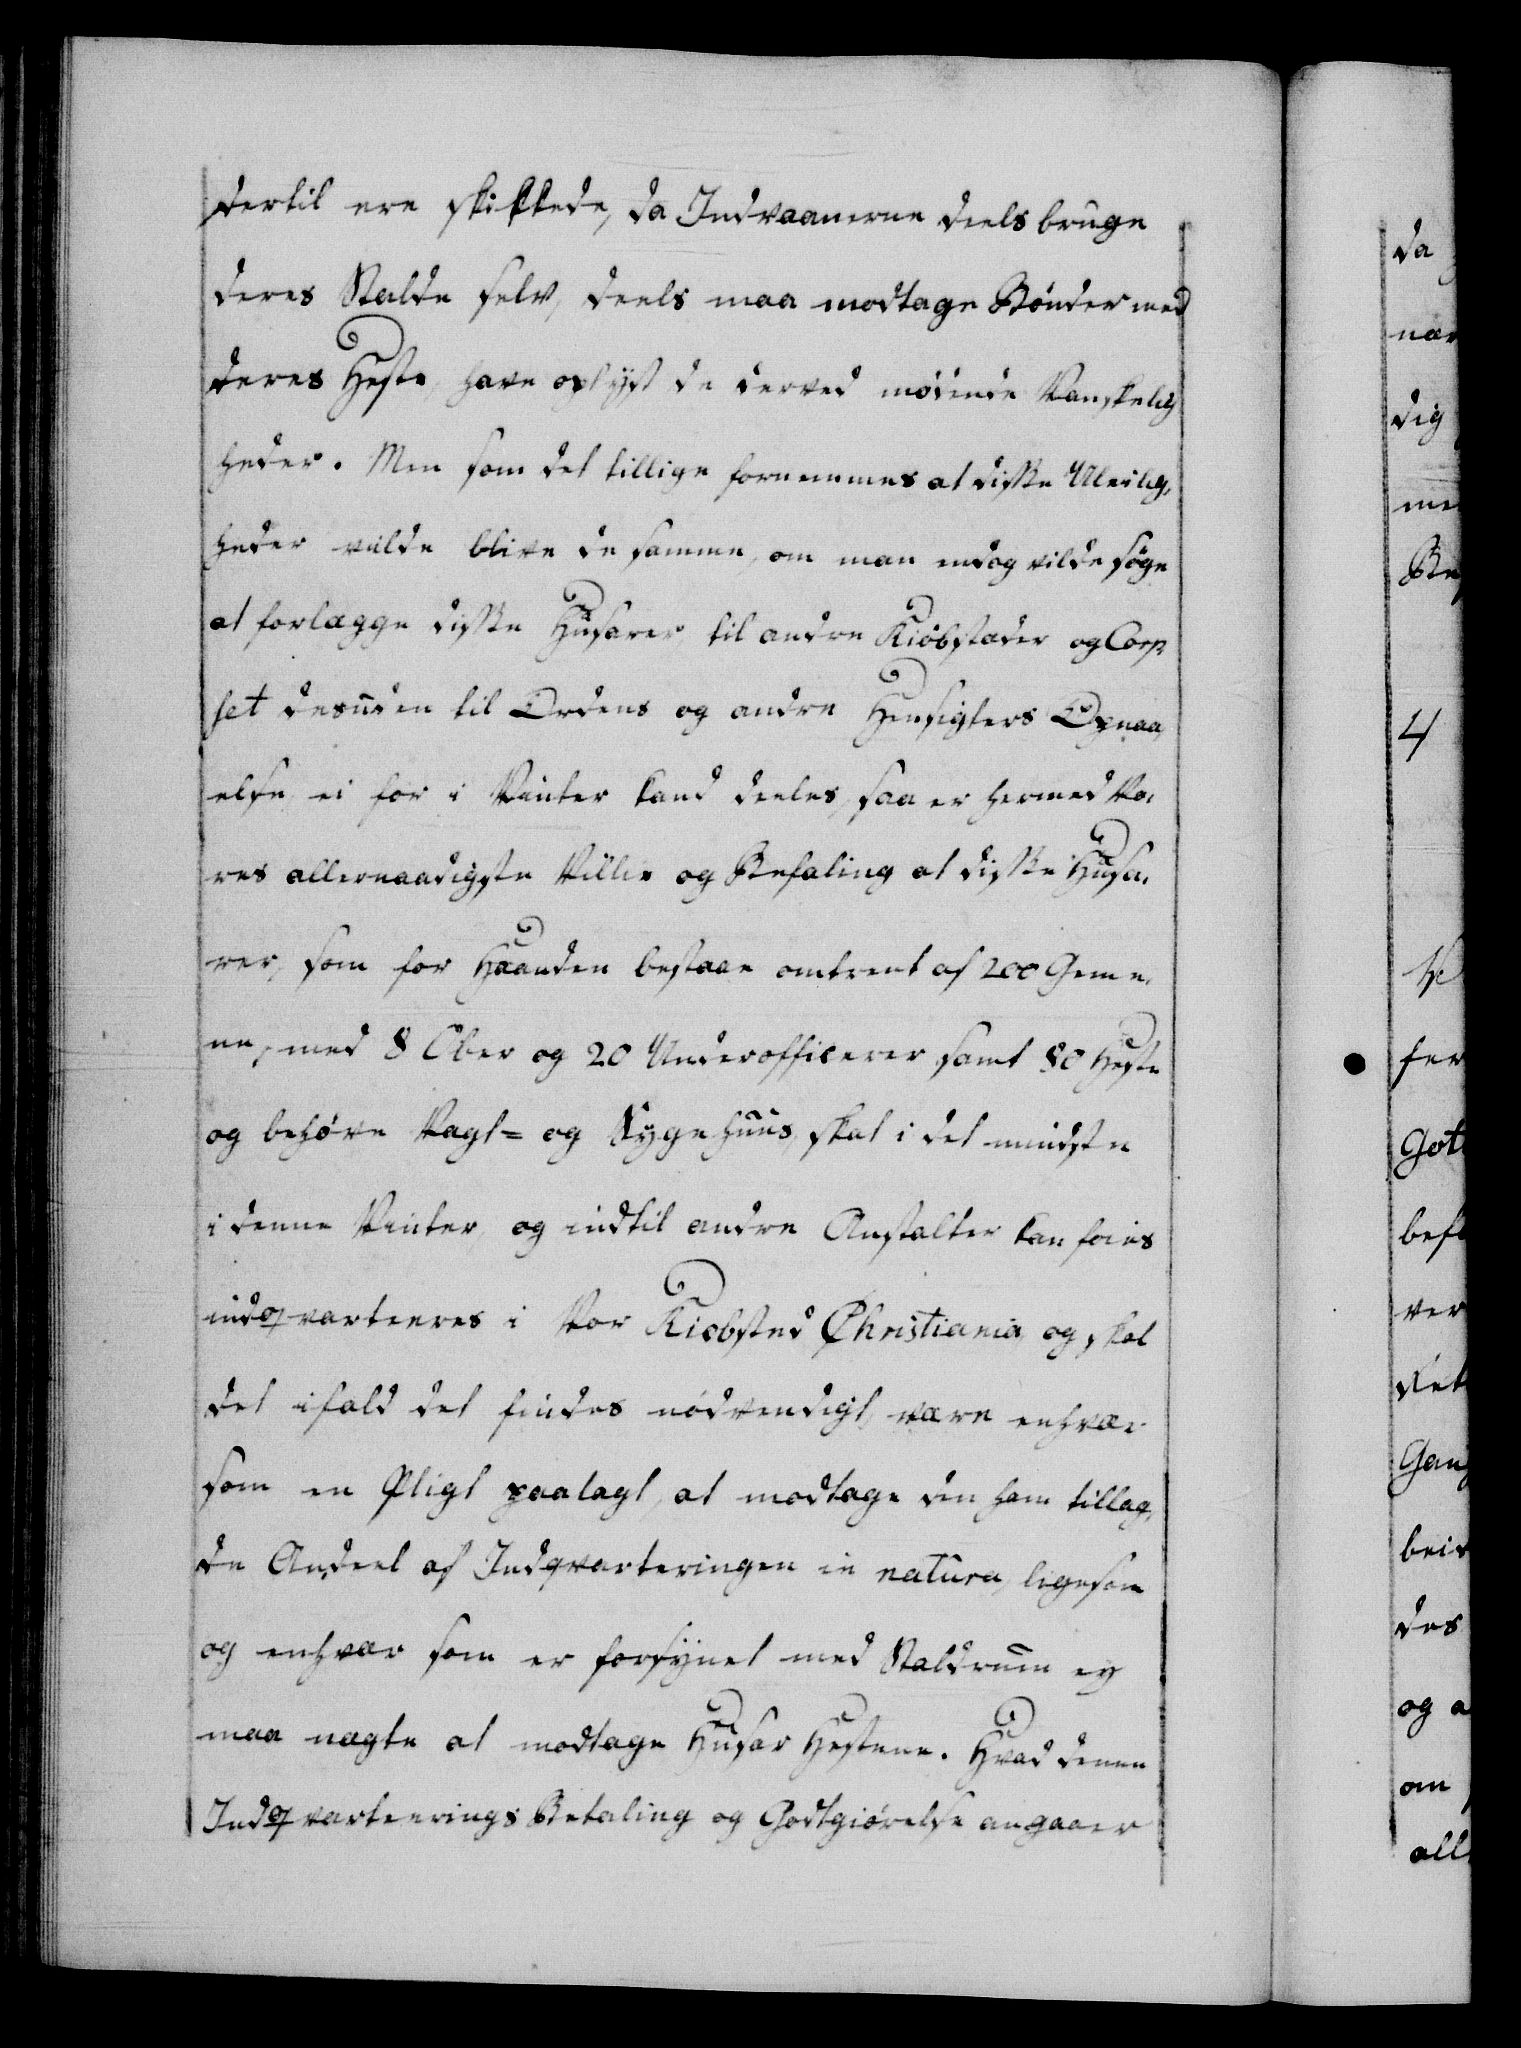 dertil ere skikkede, da Indvaanerne deels bruge
deres Stalde selv, deels maa modtage Bønder med
deres Heste have oplyst de derved mødende Vanskelig
heder. Men som det tillige fornemmes at disse Uleilig,
heder vilde blive de samme, om man endog vilde søge
at forlægge disse Husarer til andre Kiøbstæder og Corp
set desuden til Ordens og andre Hensigters Opnaa,
else ei for i Vinter kand deeles, saa er hermed Vo,
res allernaadigste Villie og Befaling at disse Husa,
rer, som for Haanden bestaae omtrent af 200 Geme,
ne, med 8 Ober og 20 Underofficerer samt 80 Heste
og behøve Vagt= og Sygehuus, skal i det mindste
i denne Vinter, og indtil andre Anstalter kan føies
indqvarteeres i Vor Kiøbsted Christiania, og skal
det ifald det findes nødvendigt, være enhver
som en Pligt paalagt, at modtage den ham tillag,
de Andeel af Indqvarteringen in natura, ligesom
og enhver som er forsynet med Staldrum ey
maa nægte at modtage Husar Hestene. Hvad denne
Indqvarteerings Betaling og Godtgiørelse angaaer
da
nær
dig
me
Be
4
fer
Got
befa
ver
det
Gang
beid
des
og a
om
all